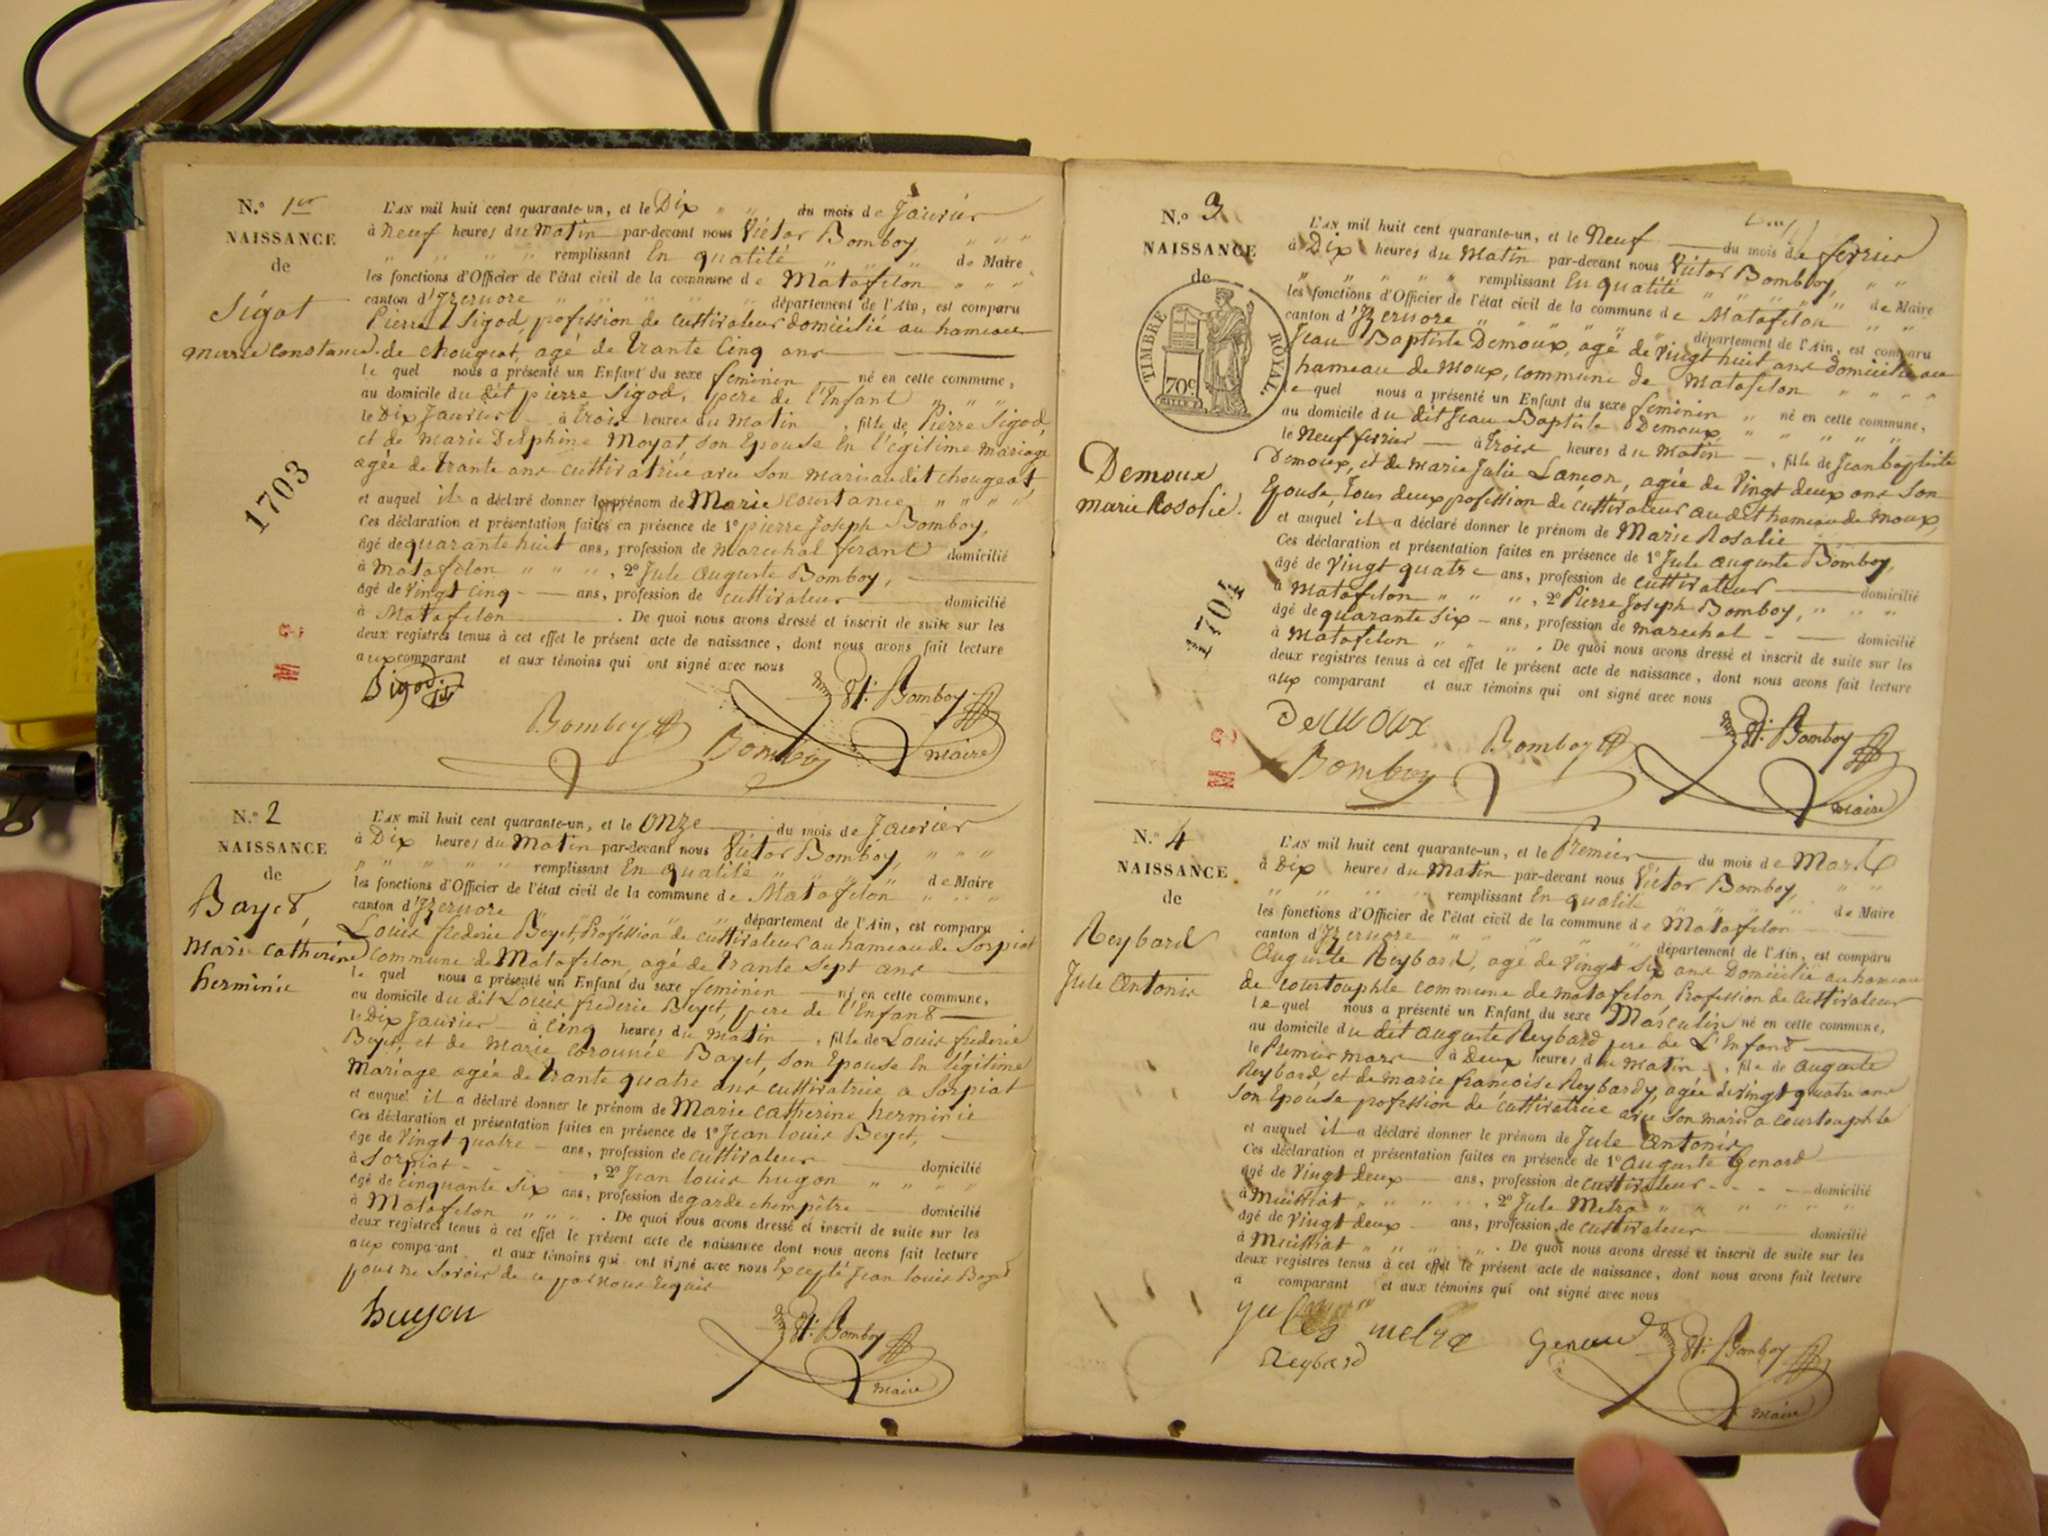 N.º 1er
NAISSANCE
de
Sigot
marie constance
1703
L'AN mil huit cent quarante-un, et le Dix " " du mois de Janvier
à neuf heures du matin par-devant nous Victor Bomboy " " "
" " " " remplissant En qualité " " " " de Maire
les fonctions d'Officier de l'état civil de la commune de Matafelon " " "
canton d'Izernore " " " " " département de l'Ain, est comparu
Pierre Sigod, profession de cultivateur domicilié au hameau
de chougeat, agé de trante Cinq ans
le quel nous a présenté un Enfant du sexe feminin né en cette commune,
au domicile du dit pierre Sigod, pere de l'Enfant " " "
le Dix Janvier à trois heures du matin, fille de Pierre Sigod,
et de marie Delphine Moyat, son Epouse En l'égitime mariage
agée de trante ans cultivatrice avec son mari au dit chougeat,
et auquel il a déclaré donner le prénom de Marie constance " " " "
Ces déclaration et présentation faites en présence de 1º pierre Joseph Bomboy,
âgé de quarante huit ans, profession de marechal ferant domicilié
à Matafelon " " " , 2º Jule auguste Bomboy,
âgé de vingt cinq ans, profession de cultivateur domicilié
à Matafelon . De quoi nous avons dressé et inscrit de suite sur les
deux registres tenus à cet effet le présent acte de naissance, dont nous avons fait lecture
aux comparant et aux témoins qui ont signé avec nous
Sigod
Bomboy
Bomboy
Vt. Bomboy
maire
N.º 2
NAISSANCE
de
Bayet,
Marie Catherine
herminie
L'AN mil huit cent quarante-un, et le Onze du mois de Janvier
à Dix heures du Matin par-devant nous Victor Bomboy, " " "
" " " " " remplissant En qualité " " " " " de Maire
les fonctions d'Officier de l'état civil de la commune de Matafelon " " "
canton d'Izernore " " " " département de l'Ain, est comparu
Louis frederic Beyet, Profession de cultivateur au hameau de Sorpiat
commune de Matafelon, agé de trante sept ans
le quel nous a présenté un Enfant du sexe feminin né en cette commune,
au domicile du dit Louis frederic Beyet, pere de l'Enfant
le Dix Janvier à cinq heures du matin, fille de Louis frederic
Beyet, et de Marie corounée Bayet, son Epouse En légitime
Mariage agée de trante quatre ans cultivatrice a Sorpiat
et auquel il a déclaré donner le prénom de Marie catherine herminie
Ces déclaration et présentation faites en présence de 1º Jean Louis Beyet,
âgé de Vingt quatre ans, profession de cultivateur domicilié
à Sorpiat , 2º Jean Louis hugon " " " "
âgé de cinquante six ans, profession de garde champêtre domicilié
à Matafelon " " " . De quoi nous avons dressé et inscrit de suite sur les
deux registres tenus à cet effet le présent acte de naissance dont nous avons fait lecture
aux comparant et aux témoins qui ont signé avec nous Excepté Jean Louis Beyet
pour ne savoir de ce par nous requis
hugon
Vt. Bomboy
maire
N.º 3
NAISSANCE
de
TIMBRE ROYAL.
70c
Demoux
marie Rosalie.
1704
L'AN mil huit cent quarante-un, et le Neuf du mois de fevrier
à Dix heures du Matin par-devant nous Victor Bomboy, " "
" " " " " remplissant En qualité " " " " " de Maire
les fonctions d'Officier de l'état civil de la commune de Matafelon " "
canton d'Izernore " " " " " département de l'Ain, est comparu
Jean Baptiste Demoux, agé de Vingt huit ans domicilié au
hameau de Moux, commune de Matafelon " " " "
le quel nous a présenté un Enfant du sexe feminin " né en cette commune,
au domicile du dit Jean Baptiste Demoux, " " " " "
le Neuf fevrier à trois heures du Matin, fille de Jean baptiste
Demoux, et de marie Julie Lançon, agée de Vingt deux ans son
Epouse, tous deux profession de cultivateur au dit hameau de Moux,
et auquel il a déclaré donner le prénom de Marie Rosalie
Ces déclaration et présentation faites en présence de 1º Jule auguste Bomboy,
âgé de Vingt quatre ans, profession de cultivateur domicilié
à Matafelon " " " , 2º Pierre Joseph Bomboy, " " "
âgé de quarante six ans, profession de marechal domicilié
à Matafelon " " " " . De quoi nous avons dressé et inscrit de suite sur les
deux registres tenus à cet effet le présent acte de naissance, dont nous avons fait lecture
aux comparant et aux témoins qui ont signé avec nous
Demoux
Bomboy
Bomboy
Vt. Bomboy
maire
N.º 4
NAISSANCE
de
Reybard
Jule Antonir
L'AN mil huit cent quarante-un, et le Premier du mois de Mars
à Dix heures du Matin par-devant nous Victor Bomboy, " "
" " " " " remplissant En qualité " " " " de Maire
les fonctions d'Officier de l'état civil de la commune de Matafelon
canton d'Izernore " " " " " département de l'Ain, est comparu
Auguste Reybard, agé de Vingt six ans Domicilié au hameau
de courtouphle commune de matafelon Profession de cultivateur
le quel nous a présenté un Enfant du sexe Masculin né en cette commune,
au domicile du dit auguste Reybard pere de L'Enfant
le Premier mars à Deux heures du matin, fils de Auguste
Reybard et de marie françoise Reybardy, agée de vingt quatre ans
Son Epouse profession de cultivatrice avec son mari a courtouphle
et auquel il a déclaré donner le prénom de Jule Antonir
Ces déclaration et présentation faites en présence de 1º auguste Genard
âgé de Vingt deux ans, profession de cultivateur domicilié
à " " " " , 2º Jule Metra " " " " "
âgé de Vingt deux ans, profession de cultivateur domicilié
à " " " " . De quoi nous avons dressé et inscrit de suite sur les
deux registres tenus à cet effet le présent acte de naissance, dont nous avons fait lecture
a comparant et aux témoins qui ont signé avec nous
Jules metra
Reybard
Genard
Vt. Bomboy
maire